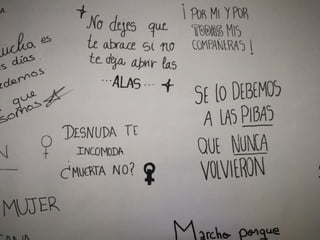 A.
ucha es
s días
edemos
que
somos
No dejes que
te abrace si no
te deja abrir las
...ALAS...
¡POR MI Y POR
TODES MIS
COMPAÑERAS!
SE LO DEBEMOS
A LAS PIBAS
QUE NUNCA
VOLVIERON
DESNUDA TE
INCOMODA
¿MUERTA NO?
N
MUJER
Marcho porque